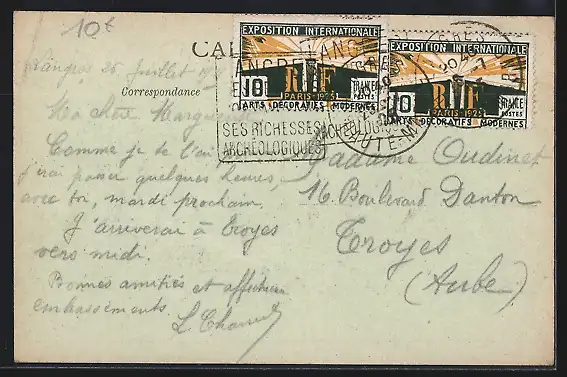 10 t
CAR
EXPOSITION INTERNATIONALE
10
RF
FRANCE
POSTES
PARIS-1925
ARTS DECORATIFS MODERNES
EXPOSITION INTERNATIONALE
10
RF
FRANCE
POSTES
PARIS-1925
ARTS DECORATIFS MODERNES
SES RICHESSES
ARCHÉOLOGIQUES
Correspondance
Langres 26 Juillet
Ma chère Marguerite
Comme je te l'ai
j'irai passer quelques heures,
avec toi, mardi prochain,
J'arriverai à Troyes
vers midi.
Bonnes amitiés et affectueux
embrassements
L.
Madame Oudinet
16 Boulevard Danton
Troyes
(Aube)